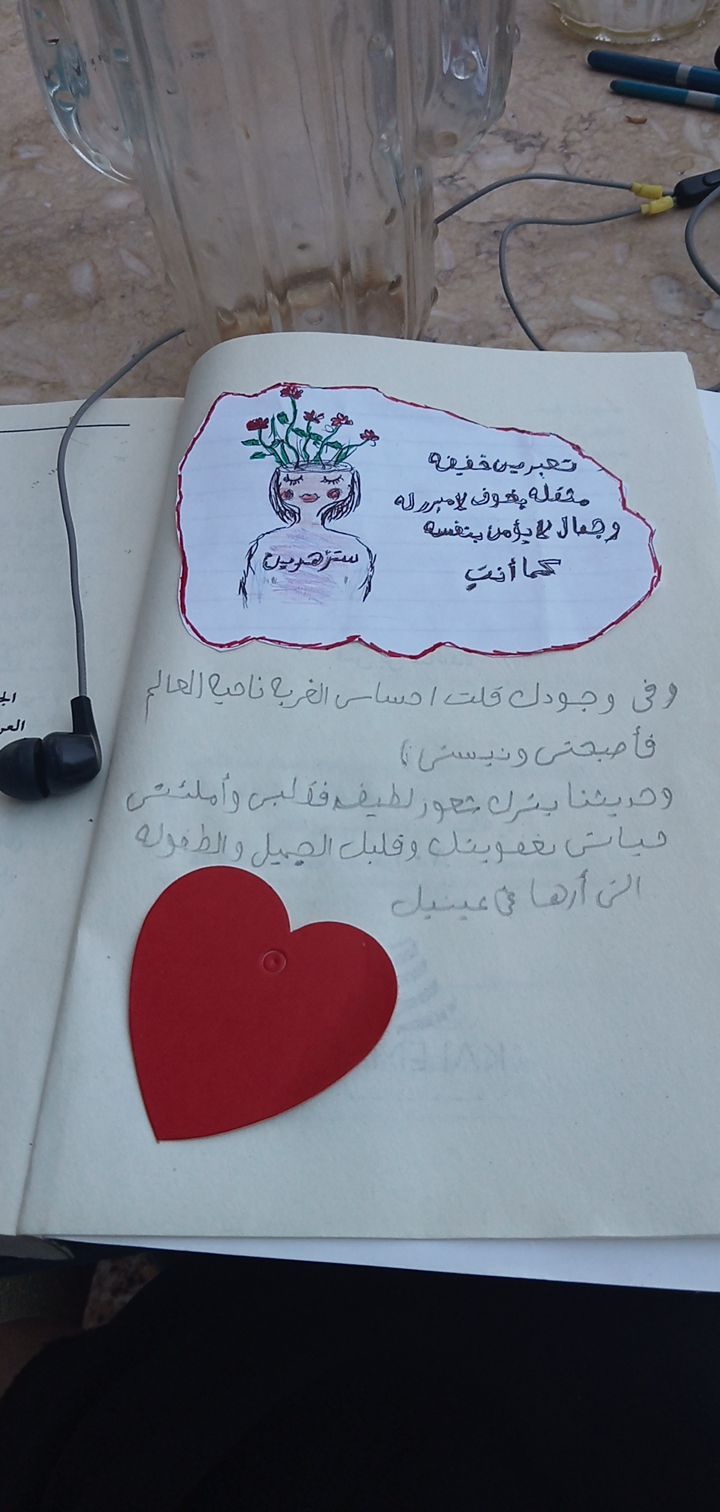 تعبرين خفيفه
مثقله بخوف لا مبرر له
وجمال لا يؤمن بنفسه
كما أنتِ
ستزهرين
وفى وجودك قلت احساس الغربه ناحيه العالم
فأصبحتى ونيستى
وحديثنا يترك شعور لطيف فالبى وأملئتى
حياتى بعفويتك وقلبك الجميل والطفوله
التى أرها فى عينيك
الج
العر
KALEM